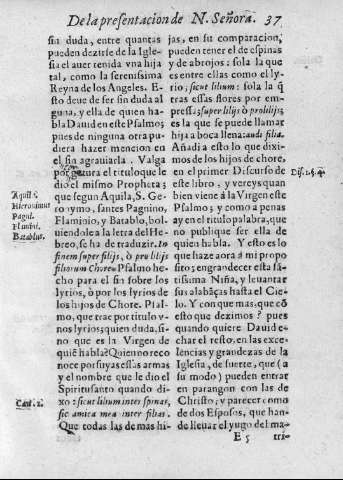 De la presentacion de N. Señora. 37
sin duda, entre quantas
pueden dezirse de la Igle-
sia el auer tenida vna hija
tal, como la serenissima
Reyna de los Angeles. E-
sto deue de ser sin duda al
guna, y ella de quien ha-
bla Dauid en este Psalmo; y
pues de ninguna otra pu-
diera hazer mencion en
el sin agrauiarla. Valga
por                     el titulo que le
dio el mismo Propheta;
que segun Aquila, S. Ge-
ronymo, santes Pagnino,
Flaminio, y Batablo, bol-
uiendole a la letra del He-
breo, se ha de traduzir. In
finem super filijs, ò pro filijs
filiorum Chore. Psalmo he-
cho para el fin sobre los
lyrios, ò por los lyrios de
los hijos de Chore. Psal-
mo, que trae por titulo v-
nos lyrios; quien duda, si-
no que es la Virgen de
quiē habla? Quien no reco
noce por suyas essas armas
y el nombre que le dio el
Spiritu santo quando di-
xo: sicut lilium inter spinas,
sic amica mea inter filias.
Que todas las de mas hi-
Aquil.
Hieronimus
Pagul.
Flamini.
Batablus.
Cant. 2.
jas, en su comparacion,
pueden tener el de espinas
y de abrojos: sola la que
es entre ellas como el ly-
rio; sicut lilium: sola la q̃
tras essas flores por em-
pressa; super lilijs ò pro lilijs,
es la que se puede llamar
hija a boca llena: audi filia.
Añadi a esto lo que dixi-
mos de los hijos de chore,
en el primer Discurso de
este libro, y vereys quan
bien viene à la Virgen este
Psalmo; y como a penas
ay en el titulo palabra, que
no publique ser ella de
quien habla. Y esto es lo
que haze aora à mi propo
sito; engrandecer esta sā-
tissima Niña, y leuantar
sus alabāças hasta el Cie-
lo. Y con que mas, que cō
esto que dezimos? pues
quando quiere Dauid e-
char el resto, en las exce-
lencias y grandezas de la
Iglesia, de suerte, que (a
su modo) pueden entrar
en parangon con las de
Christo; y parecer como
de dos Esposos, que han-
de lleuar el yugo del ma-
E 5 tri-